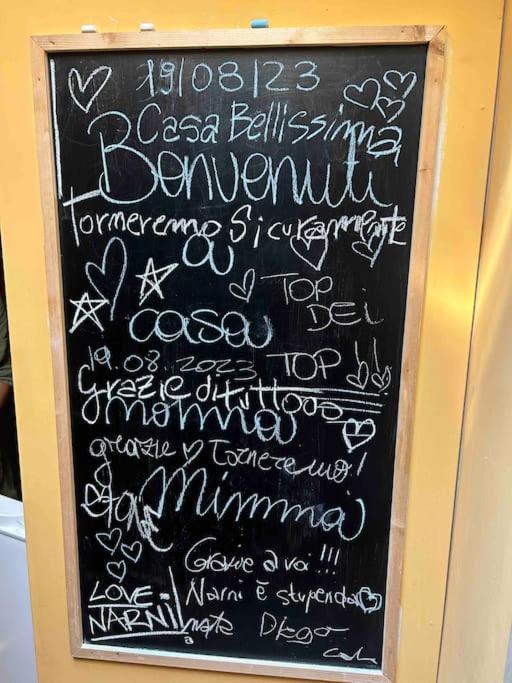 19/08/23
Casa Bellissima
Benvenuti
Torneremo Sicuramente
a
TOP
DEI
casa
19.08.2023 TOP!!
Grazie di tutto
nonna
grazie Torneremo!
Mimma
Grazie a voi!!!
LOVE Narni è stupenda
NARNI Diego